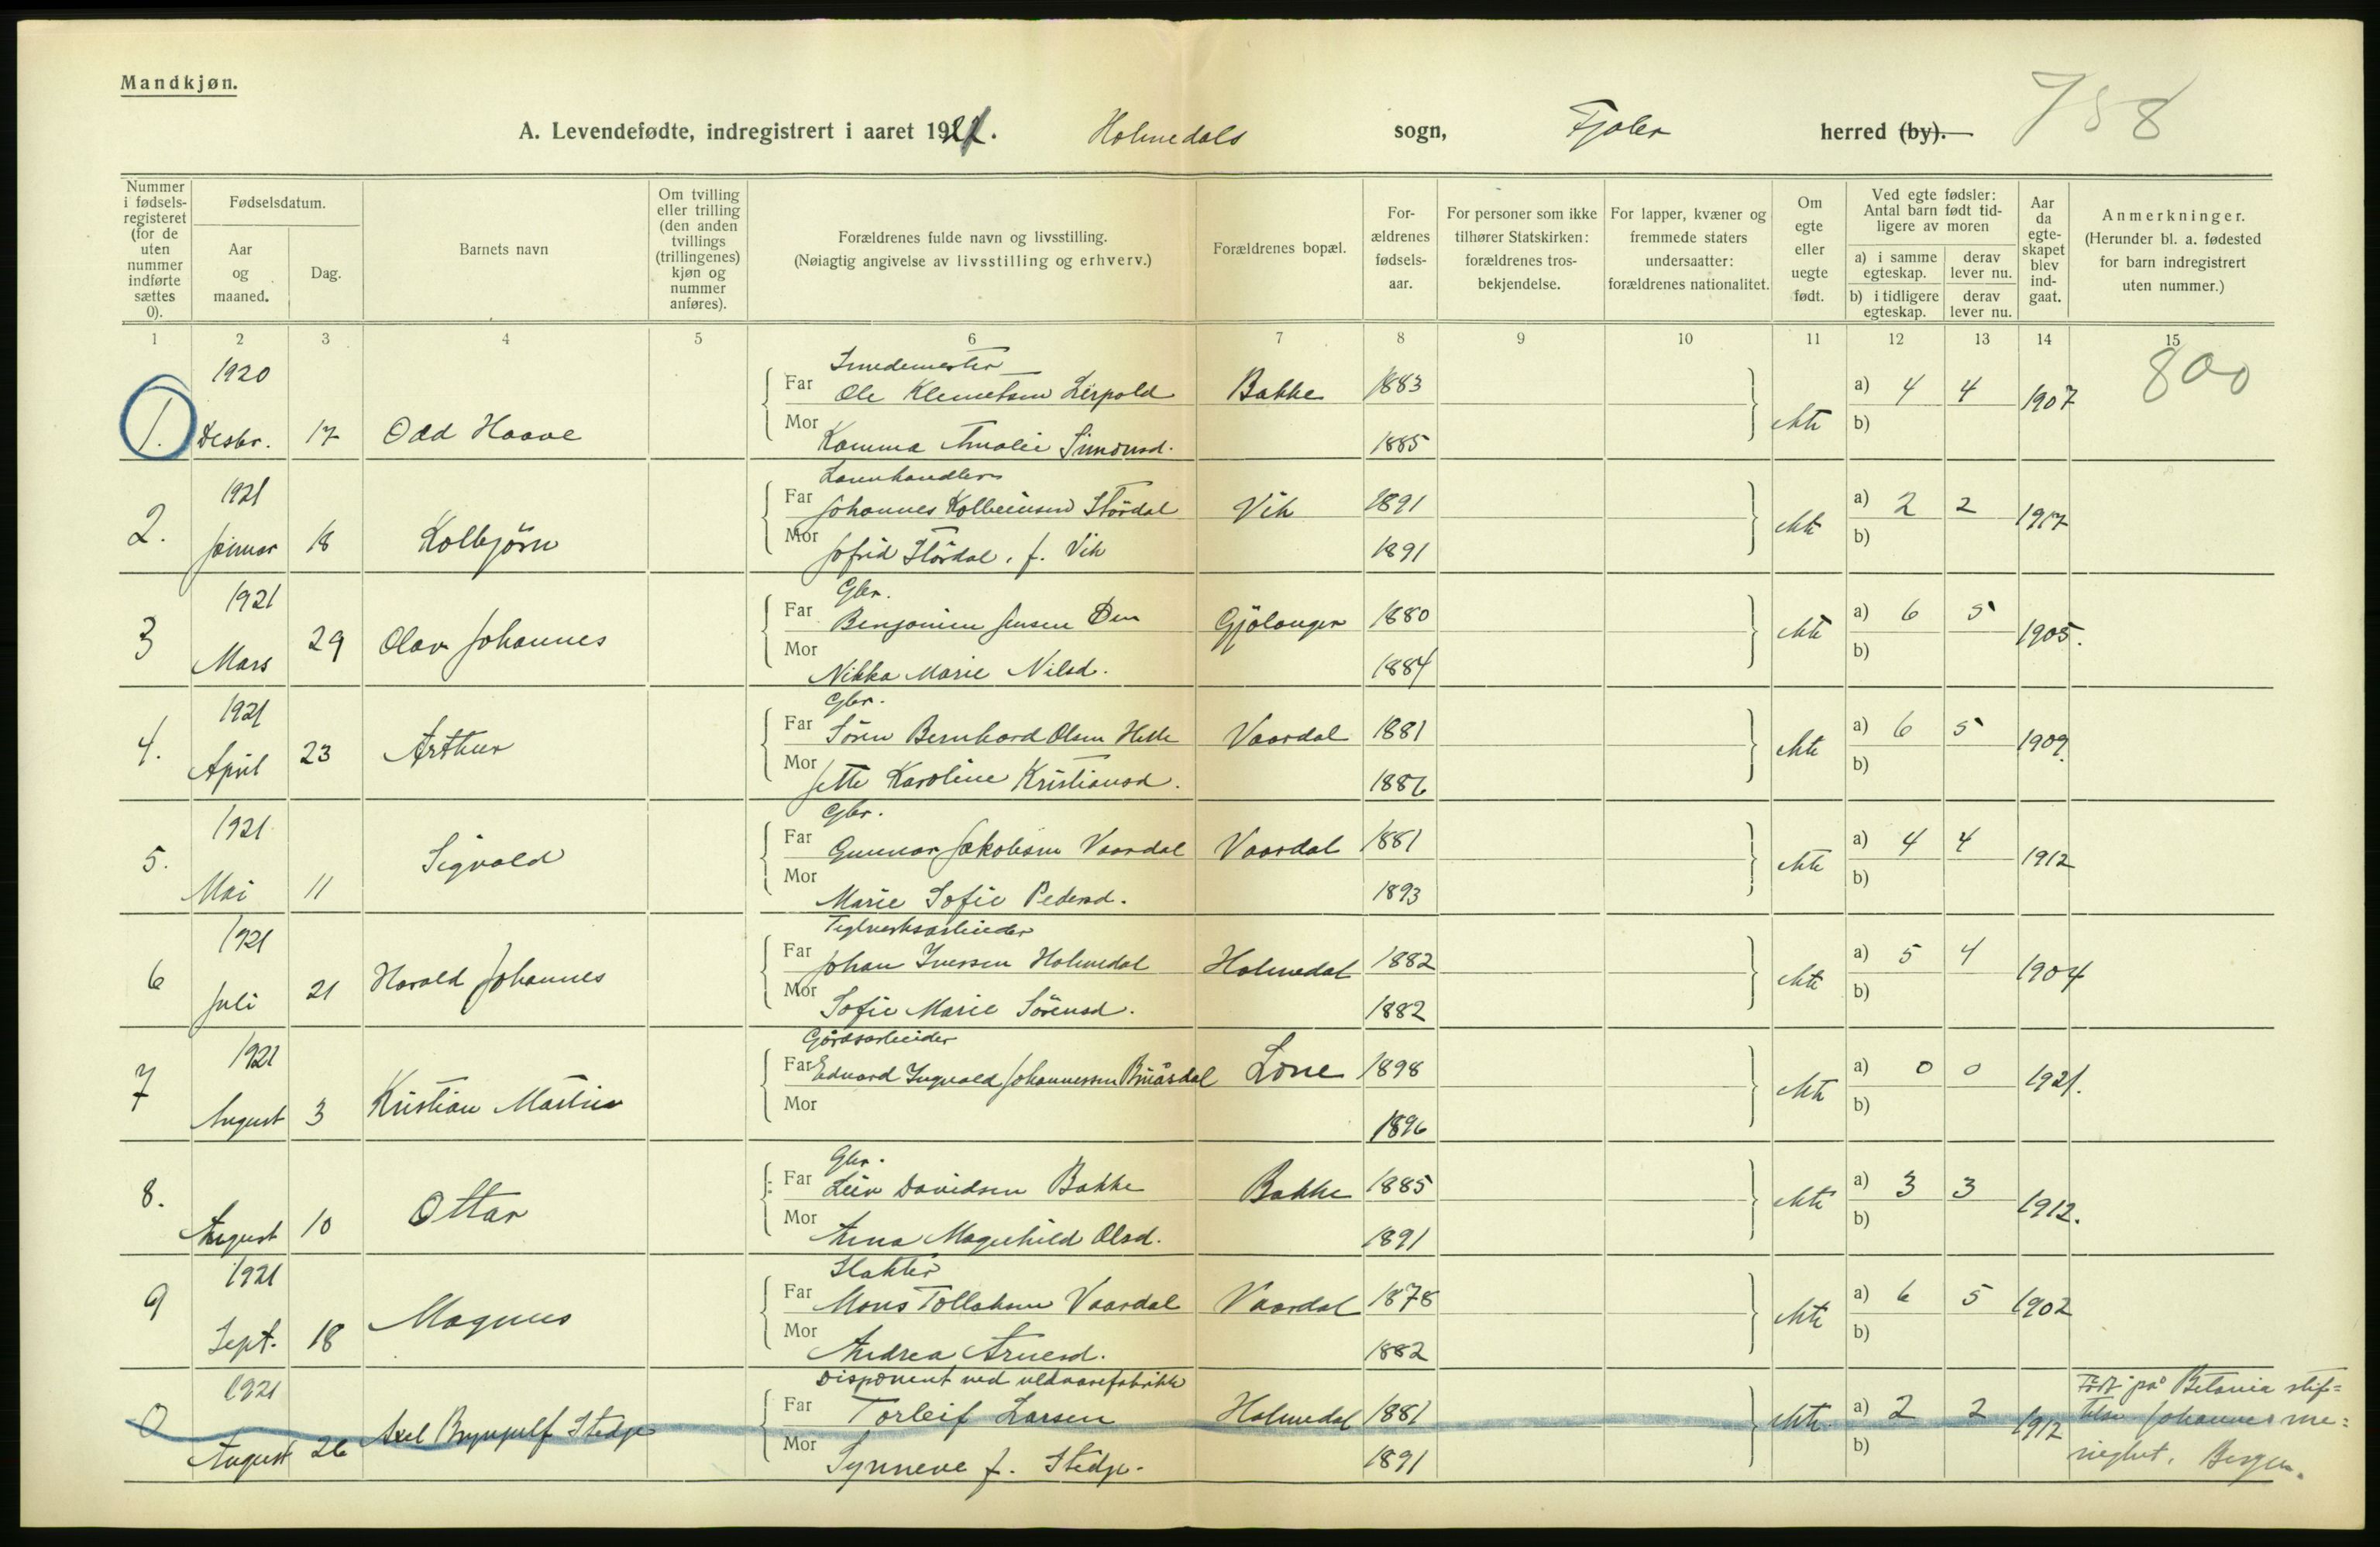 Mandkjøn.
758
A. Levendefødte, indregistrert i aaret 1921. Holmedals sogn, Fjaler herred (by).
Nummer i fødsels-registeret (for de uten nummer indførte sættes 0).
Fødselsdatum.
Aar og maaned.
Dag.
Barnets navn
Om tvilling eller trilling (den anden tvillings (trillingenes) kjøn og nummer anføres).
Forældrenes fulde navn og livsstilling.
(Nøiagtig angivelse av livsstilling og erhverv.)
Forældrenes bopæl.
For-ældrenes fødsels-aar.
For personer som ikke tilhører Statskirken: forældrenes tros-bekjendelse.
For lapper, kvæner og fremmede staters undersaatter: forældrenes nationalitet.
Om egte eller uegte født.
Ved egte fødsler: Antal barn født tid-ligere av moren
a) i samme egteskap.
derav lever nu.
b) i tidligere egteskap.
derav lever nu.
Aar da egte-skapet blev ind-gaat.
Anmerkninger.
(Herunder bl. a. fødested for barn indregistrert uten nummer.)
1 2 3 4 5 6 7 8 9 10 11 12 13 14 15
800
1920 Smedemester
Far Ole Klemetsen Leirpold Bakke 1883 a) 4 4 1907
1. Desbr. 17 Odd Haave ekte b)
Mor Kamma Amalie Simonsd. 1885
1921
Far Johannes Kolbeinsen Stördal Vik 1891 a) 2 2 1917
2. Januar 18 Kolbjörn ekte b)
Mor Jofrid Stördal, f. Vik 1891
1921 Gbr.
Far Benjamin Jensen Gjölanger 1880 a) 6 5 1905.
3 Mars 29 Olav Johannes ekte b)
Mor Nikka Marie Nilsd. 1884
1921 Gbr.
Far Sören Bernhard Olsen Helle Vaardal 1881 a) 6 5 1909.
4. April 23 Arthur ekte b)
Mor Jette Karoline Kristiansd. 1886
1921 Gbr.
Far Gunnar Jakobsen Vaardal Vaardal 1881 a) 4 4 1912
5. Mai 11 Sigvald ekte b)
Mor Marie Sofie Pedersd. 1893
1921 Teglverksarbeider
Far Johan Iversen Holmedal Holmedal 1882 a) 5 4 1904
6 Juli 21 Harald Johannes ekte b)
Mor Sofie Marie Sörensd. 1882
1921 Gårdsarbeider
Far Edvard Ingvald Johannessen Lone 1898 a) 0 0 1921.
7 August 3 Kristian Martin ekte b)
Mor 1896
Gbr.
Far Leiv Davidsen Bakke Bakke 1885 a) 3 3 1912.
8. August 10 Ottar ekte b)
Mor Anna Magnhild Olsd. 1891
1921 Slakter
Far Mons Tollaksen Vaardal Vaardal 1878 a) 6 5 1902
9 Sept. 18 Magnus ekte b)
Mor Andrea Arnesd. 1882
1921 Disponent ved uldvarefabrikk
Far Torleif Larsen Holmedal 1881 a) 2 2 1912
0 August 26 Axel Brynjulf Stedje ekte b)
Mor Synneve f. Stedje. 1891
Född på Betania stif=
telse Johannes me=
nighet, Bergen.